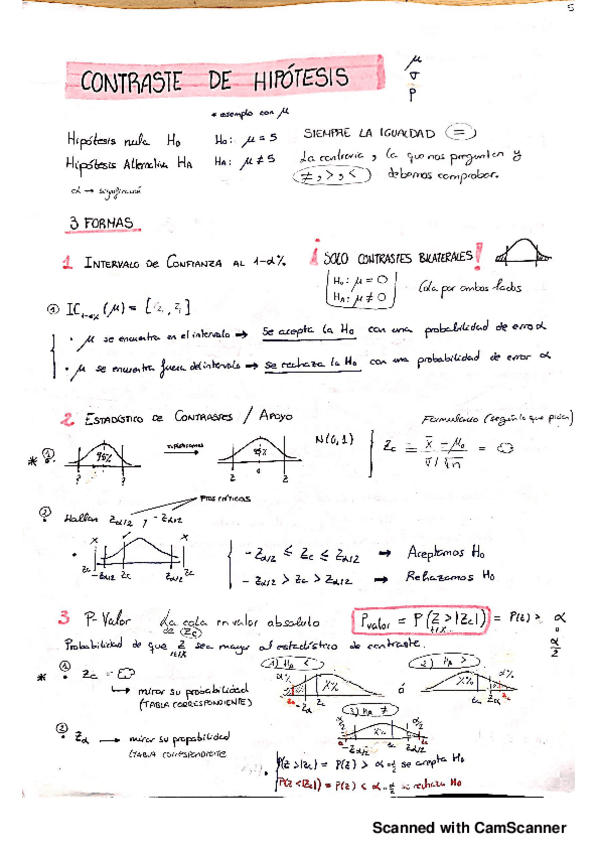 5
CONTRASTE DE HIPÓTESIS
μ
σ
P
* ejemplo con μ
Hipótesis nula H0 H0: μ = 5 SIEMPRE LA IGUALDAD (=)
Hipótesis Alternativa HA HA: μ ≠ 5 La contraria, la que nos preguntan y
(≠, >, <) debemos comprobar.
α →
3 FORMAS
1 INTERVALO DE CONFIANZA AL 1-α%. ¡SOLO CONTRASTES BILATERALES!
H0: μ = 0
HA: μ ≠ 0
Cola por ambos lados
① IC1-α (μ) = [
· μ se encuentra en el intervalo → Se acepta la H0 con una probabilidad de error α
· μ se encuentra fuera del intervalo → se rechaza la H0 con una probabilidad de error α
2 ESTADÍSTICO DE CONTRASTES / APOYO
Formulario (según lo que pidan)
* ①
95%
? ?
95%
2 0 2
N(0,1)
Zc = x̄ - μ0 / σ/√n =
② Hallar Zα/2 y -Zα/2
x x
Zc -Zα/2 Zc Zα/2 Zc
-Zα/2 ≤ Zc ≤ Zα/2 → Aceptamos H0
-Zα/2 > Zc > Zα/2 → Rechazamos H0
3 P-Valor La cola en valor absoluto
de (Zc)
Pvalor = P(Z > |Zc|) = P(Z) > α
α/2
Probabilidad de que Z sea mayor al estadístico de contraste.
* ① Zc =
→ mirar su probabilidad
(TABLA CORRESPONDIENTE)
1) HA <
α% X%
-Zα Zc
ó
2) HA >
X% α%
② Zα → mirar su probabilidad
(TABLA CORRESPONDIENTE
3) HA ≠
α/2 α/2
-Zα/2 Zα/2
P(Z > |Zc|) = P(Z) > α - α/2 se acepta H0
P(Z < |Zc|) = P(Z) < α - α/2 se rechaza H0
Scanned with CamScanner